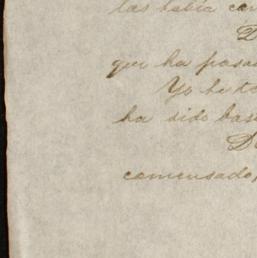 las había
D
que ha pasa
Yo he to
ha sido bas
De
comensado,